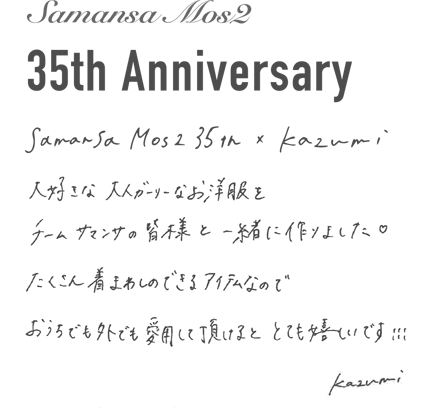 Samansa Mos2
35th Anniversary
Samansa Mos2 35th × kazumi
大好きな 大人ガーリーなお洋服を
チーム サマンサの皆様と 一緒に作りました♡
たくさん着まわしのできるアイテムなので
おうちでも外でも愛用して頂けると とても嬉しいです!!!
kazumi